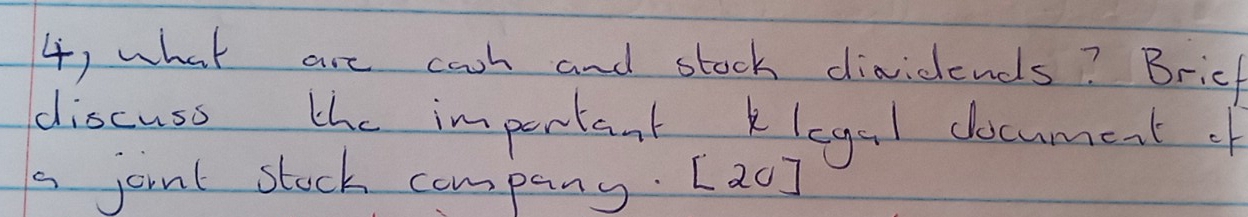 4, what are cash and stock dividends? Brief
discuss the important legal document of
a joint stock company. [20]